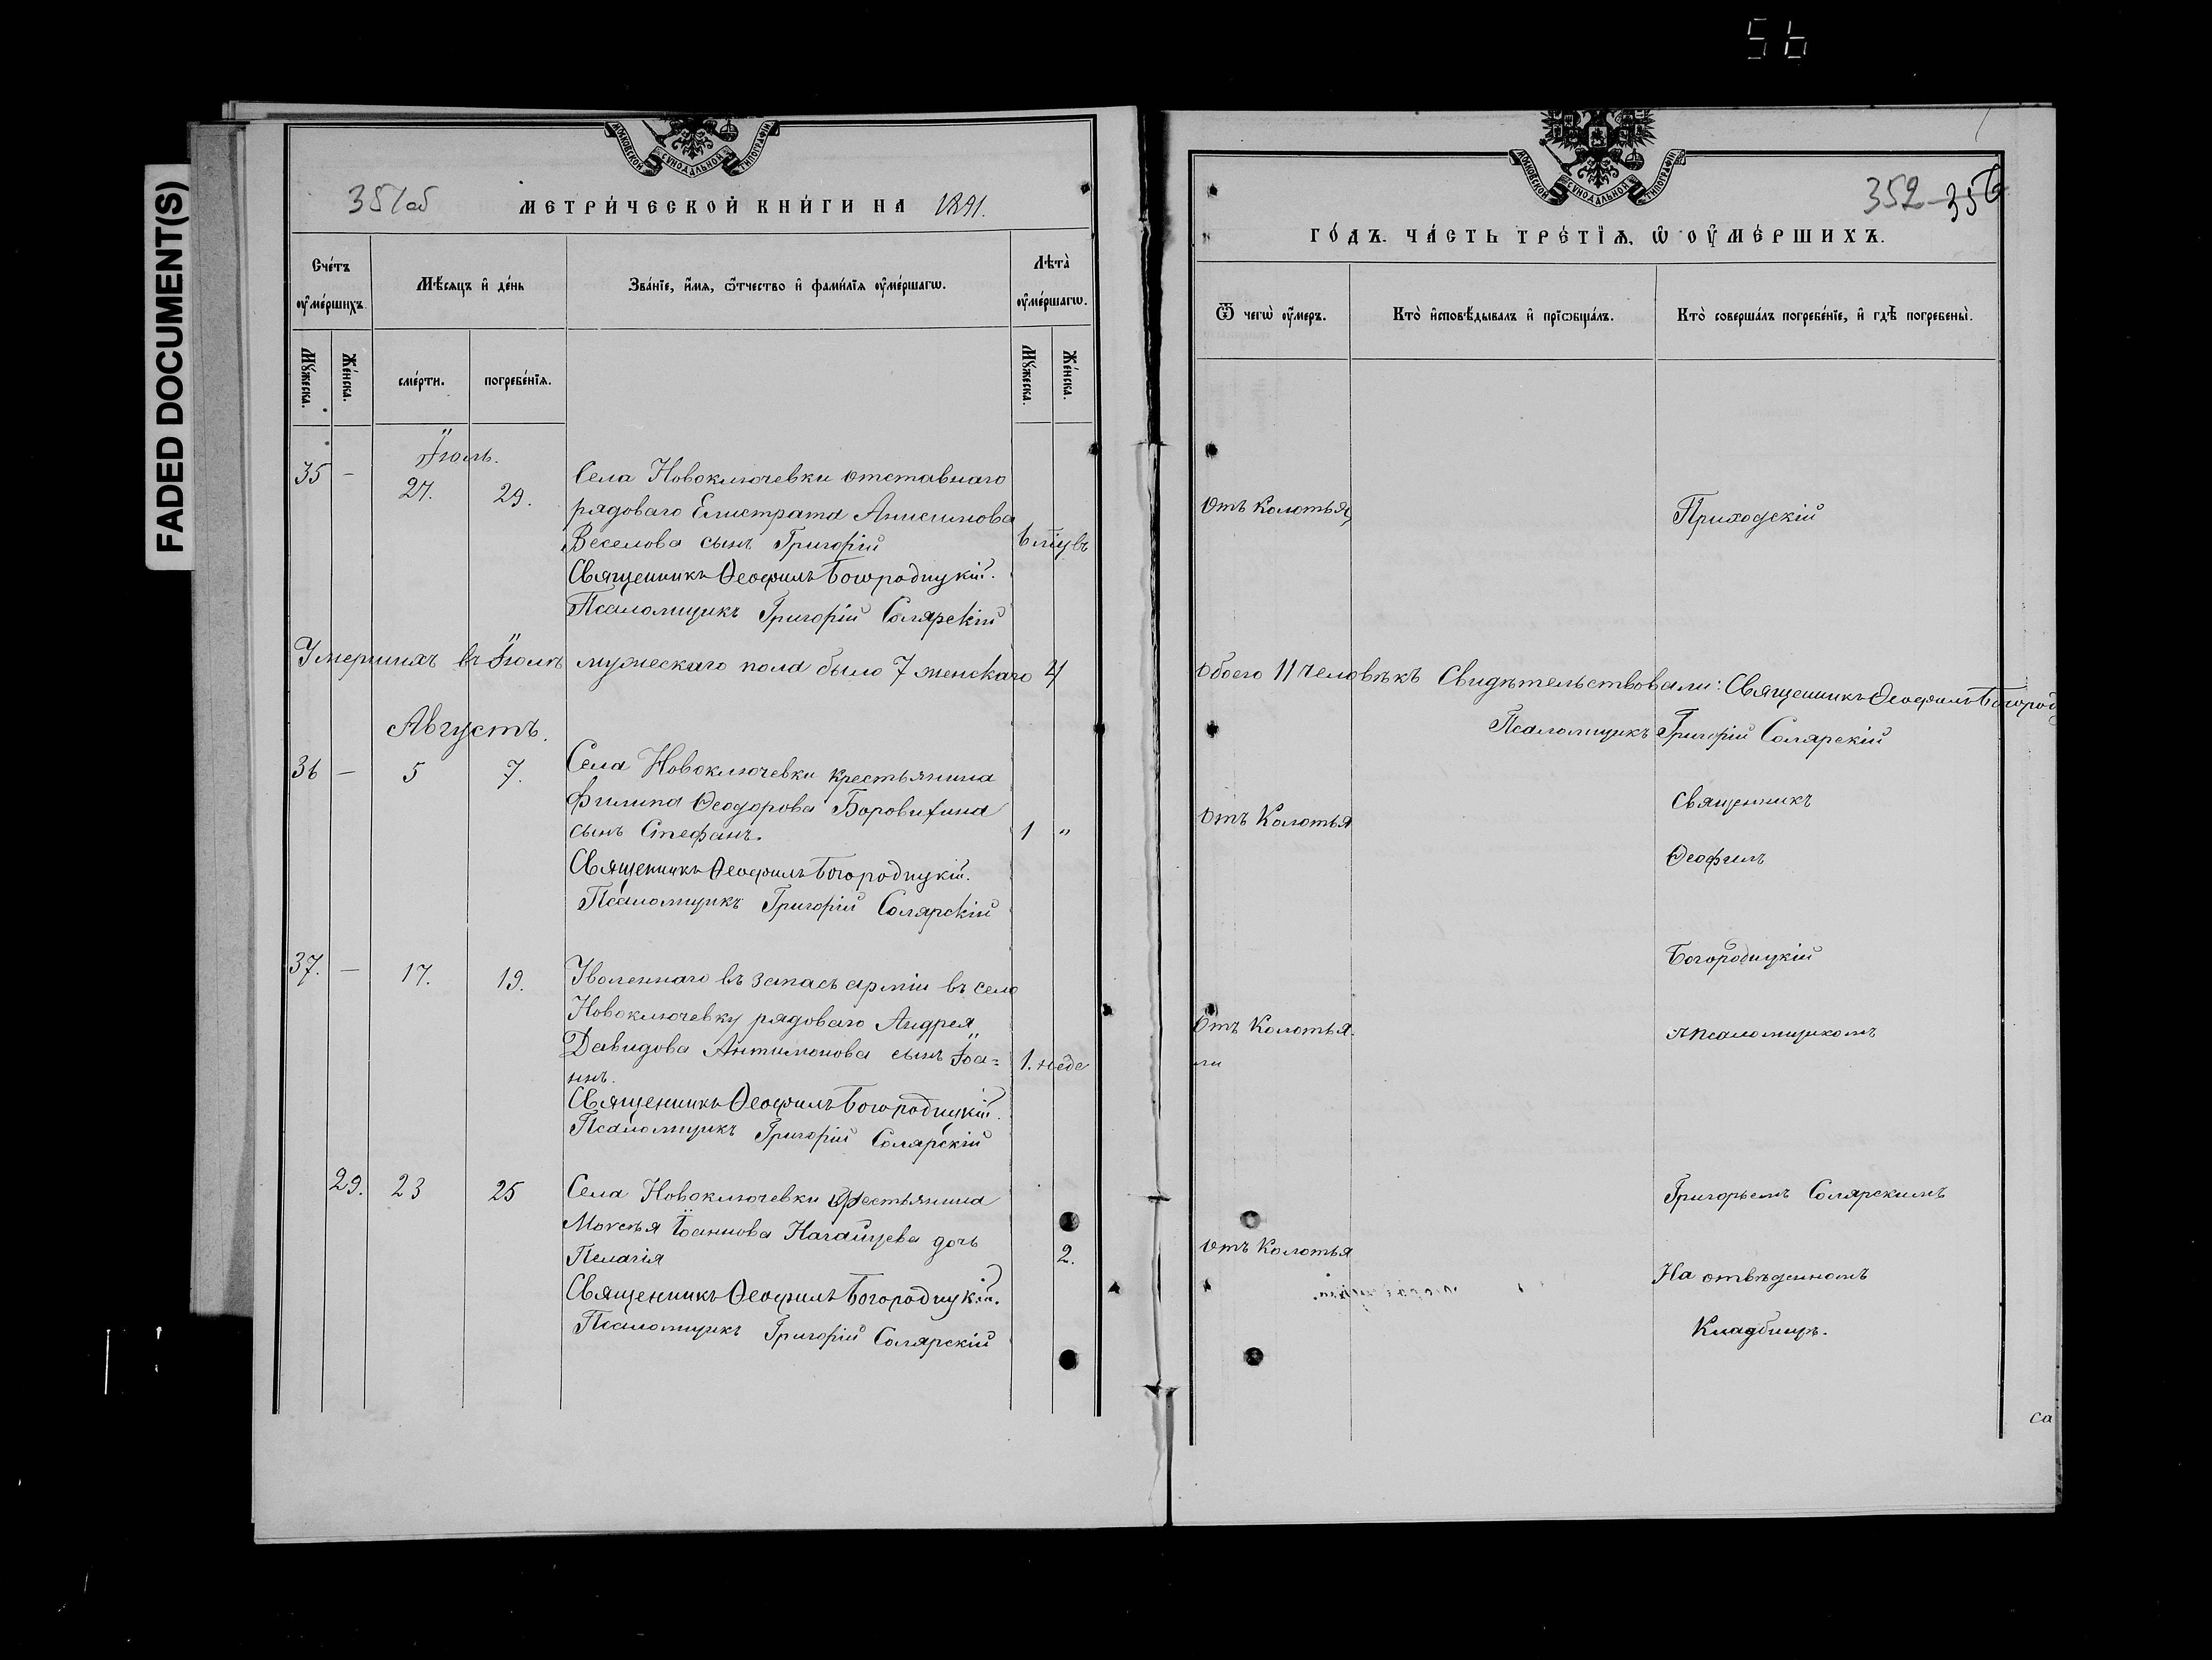 56
FADED DOCUMENT(S)
МОСКОВСКОЙ СѴНОДАЛЬНОЙ ТИПОГРАФІИ
351об
МЕТРИ́ЧЕСКОЙ КНИ́ГИ НА 1891.
Сче́тъ ᲂу҆ме́ршихъ.
Мѣ́сяцъ и҆ де́нь
Зва́нїе, и҆́мя, ѻ҆́тчество и҆ фами́лїя ᲂу҆ме́ршагѡ.
Лѣта̀ ᲂу҆ме́ршагѡ.
Мꙋ́жеска.
Же́нска.
сме́рти.
погребе́нїя.
Мꙋ́жеска.
Же́нска.
Іюль.
35 — 27. 29. Села Новоключевки отставнаго
рядоваго Елистрата Анисимова
Веселова сынъ Григорій
6 мѣсцвъ
Священникъ Ѳеофилъ Богородицкій.
Псаломщикъ Григорій Солярскій
Умершихъ въ Іюлѣ мужескаго пола было 7 женскаго 4
Августъ.
36 — 5 7. Села Новоключевки крестьянина
Филипа Ѳеодорова Боровихина
сынъ Стефанъ. 1 "
Священникъ Ѳеофилъ Богородицкій.
Псаломщикъ Григорій Солярскій
37. — 17. 19. Уволеннаго въ запасъ арміи въ село
Новоключевку рядоваго Андрея
Давидова Антимонова сынъ Іоа=
ннъ. 1. неде
Священникъ Ѳеофилъ Богородицкій.
Псаломщикъ Григорій Солярскій
29. 23 25 Села Новоключевки крестьянина
Мокѣя Іоаннова Нагайцева дочь
Пелагія 2.
Священникъ Ѳеофилъ Богородицкій.
Псаломщикъ Григорій Солярскій
МОСКОВСКОЙ СѴНОДАЛЬНОЙ ТИПОГРАФІИ
352 356
ГО́ДЪ. ЧА́СТЬ ТРЕ́ТЇѦ, Ѡ҆ ОУ҆МЕ́РШИХЪ.
Ѿ чегѡ̀ ᲂу҆́меръ.
Кто̀ и҆сповѣ́дывалъ и҆ прїѡбща́лъ.
Кто̀ соверша́лъ погребе́нїе, и҆ гдѣ̀ погребены̀.
Отъ Колотья
Приходскій
Обоего 11 человѣкъ Свидѣтельствовали: Священникъ Ѳеофилъ Богород
Псаломщикъ Григорій Солярскій
Священникъ
Отъ Колотья
Ѳеофилъ
Богородицкій
Отъ Колотья.
ли
съ псаломщикомъ
Григорьемъ Солярскимъ
Отъ Колотья
На отвѣденномъ
Кладбищѣ.
са